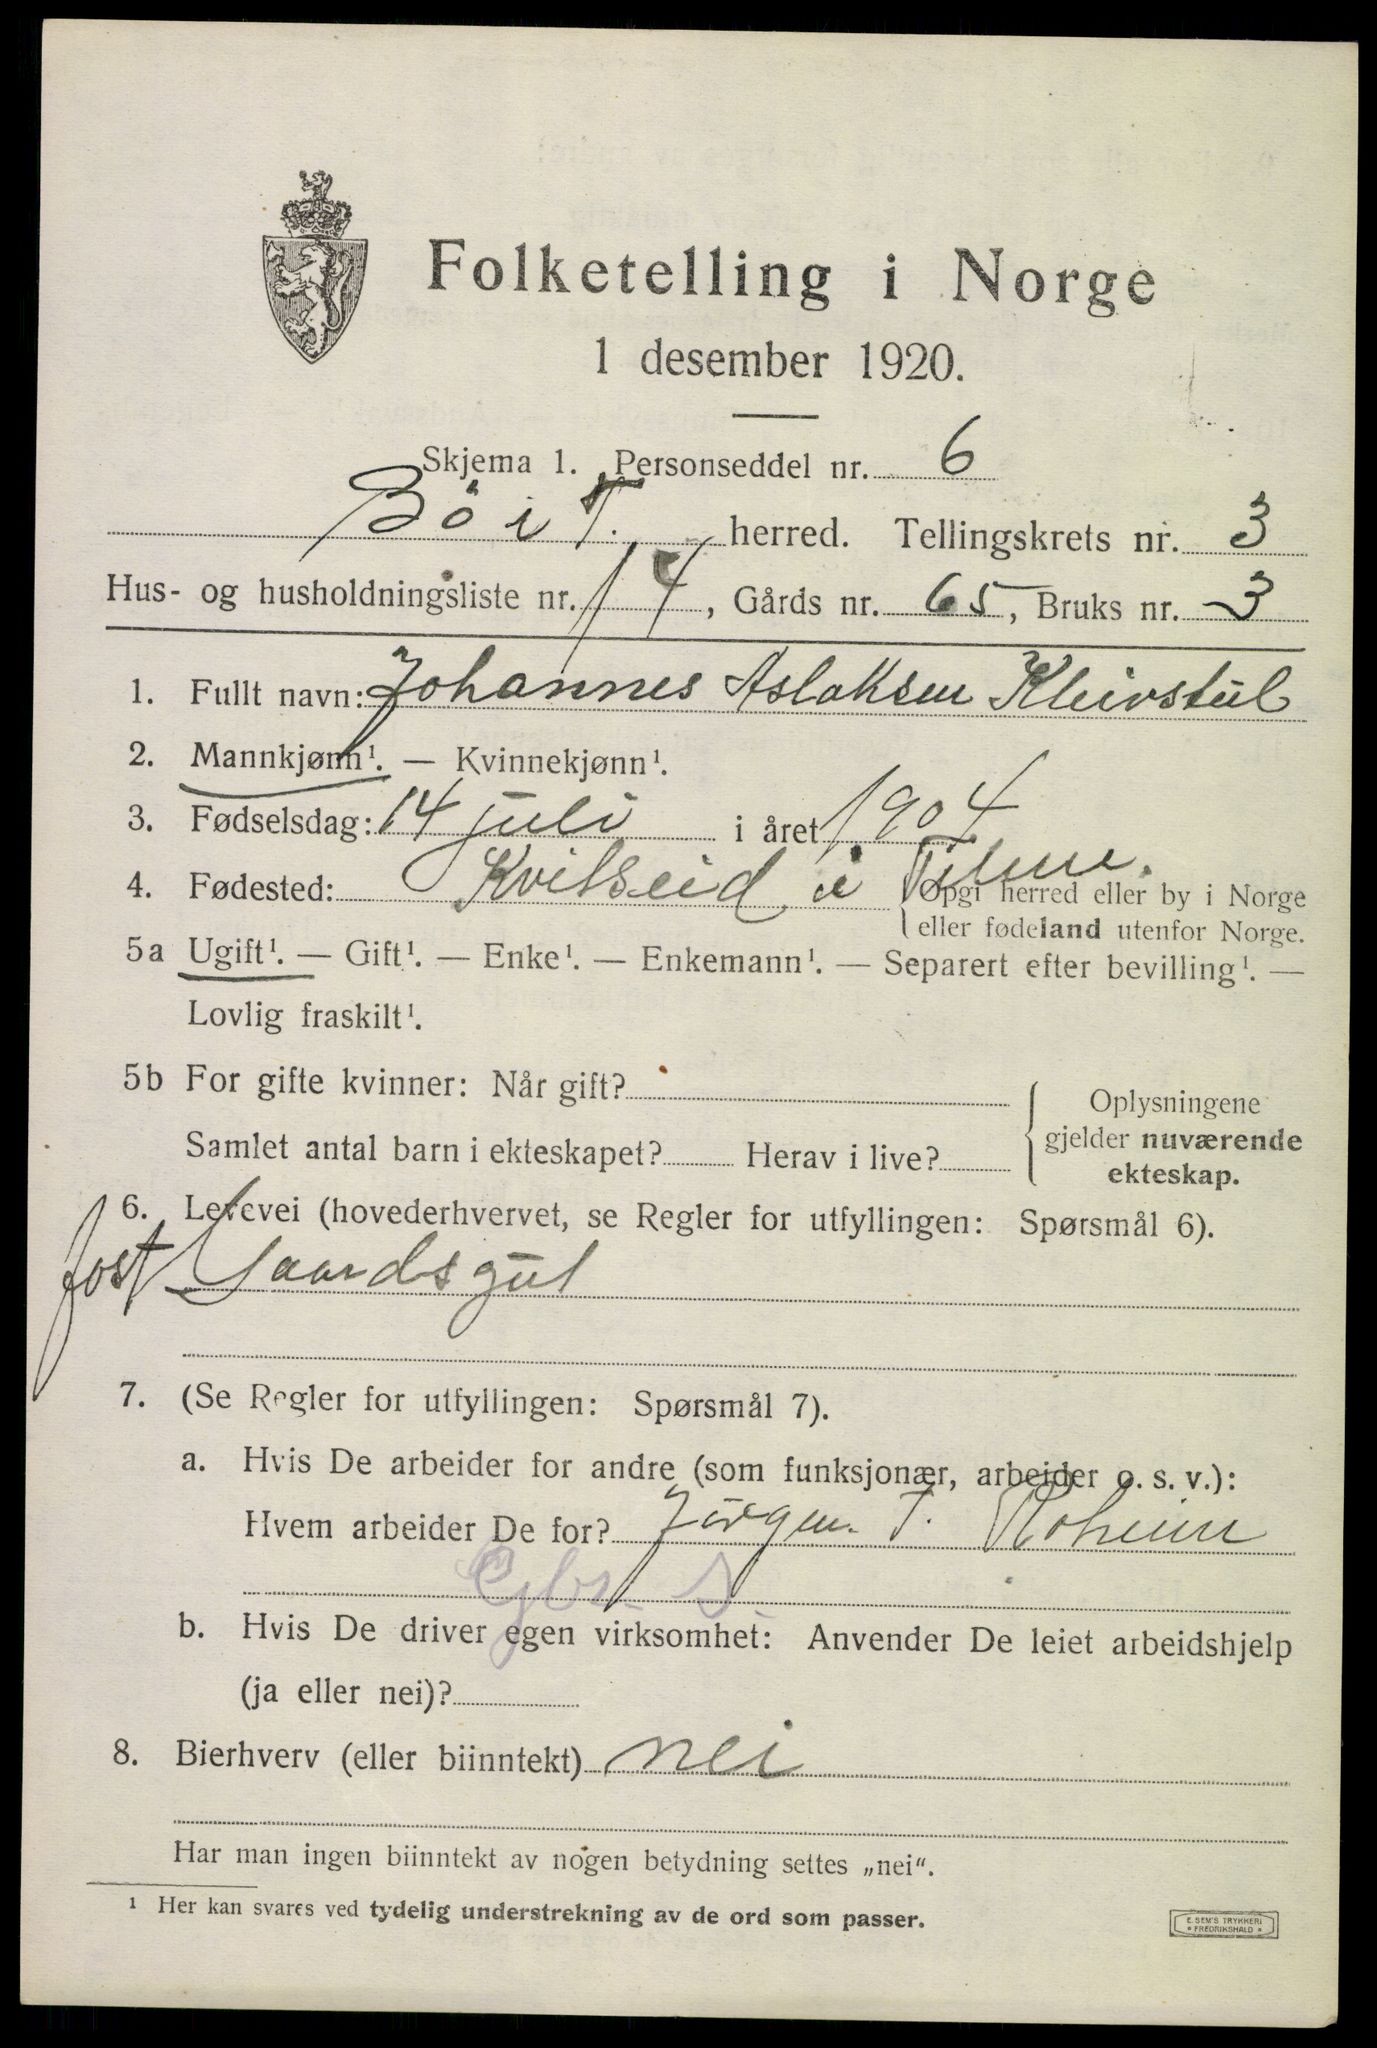 Folketelling i Norge
1 desember 1920.
Skjema 1. Personseddel nr. 6
Bö i T. herred. Tellingskrets nr. 3
Hus- og husholdningsliste nr. 14, Gårds nr. 65, Bruks nr. 3
1. Fullt navn: Johannes Aslaksen Kleivstul
2. Mannkjønn¹. — Kvinnekjønn¹.
3. Fødselsdag: 14 juli i året 1904
4. Fødested: Kvitseid i
Opgi herred eller by i Norge
eller fødeland utenfor Norge.
5a Ugift¹. — Gift¹. — Enke¹. — Enkemann¹. — Separert efter bevilling¹. —
Lovlig fraskilt¹.
5b For gifte kvinner: Når gift?
Samlet antal barn i ekteskapet? Herav i live?
Oplysningene
gjelder nuværende
ekteskap.
6. Levevei (hovederhvervet, se Regler for utfyllingen: Spørsmål 6).
fost Gaardsgut
7. (Se Regler for utfyllingen: Spørsmål 7).
a. Hvis De arbeider for andre (som funksjonær, arbeider o. s. v.):
Hvem arbeider De for? Jörgen T.
Gbr. S.
b. Hvis De driver egen virksomhet: Anvender De leiet arbeidshjelp
(ja eller nei)?
8. Bierhverv (eller biinntekt) nei
Har man ingen biinntekt av nogen betydning settes „nei“.
¹ Her kan svares ved tydelig understrekning av de ord som passer.
E. SEM'S TRYKKERI
* FREDRIKSHALD *